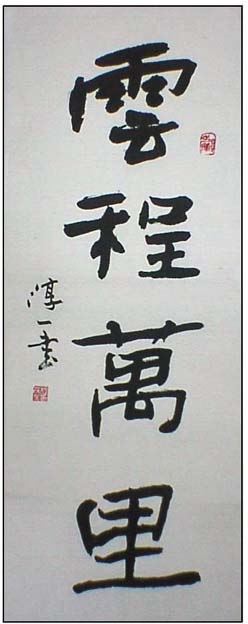 雲程萬里
淳一書